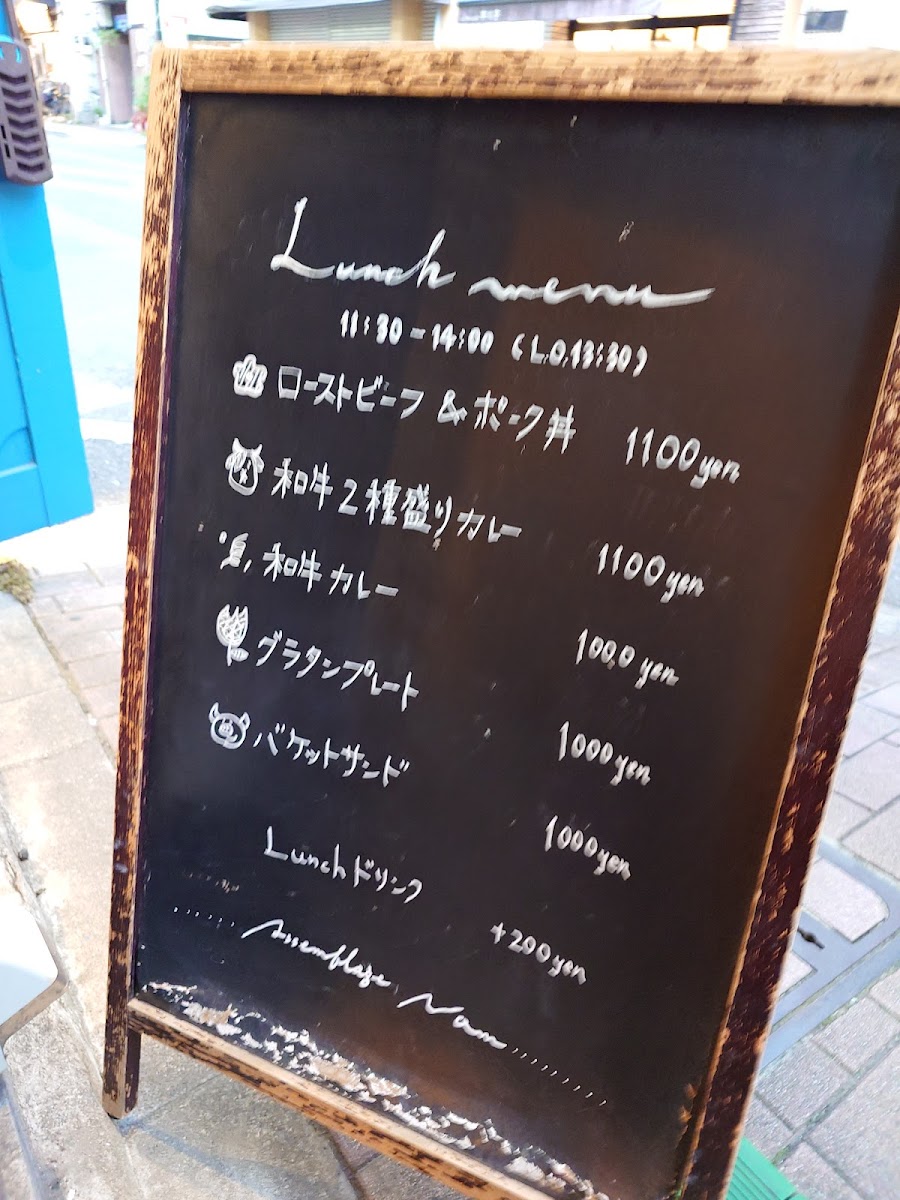 Lunch menu
11:30-14:00 (L.O.13:30)
ローストビーフ & ポーク丼 1100yen
和牛2種盛りカレー 1100yen
和牛カレー 1000yen
グラタンプレート 1000yen
バケットサンド 1000yen
Lunchドリンク +200yen
Assemblage Nam